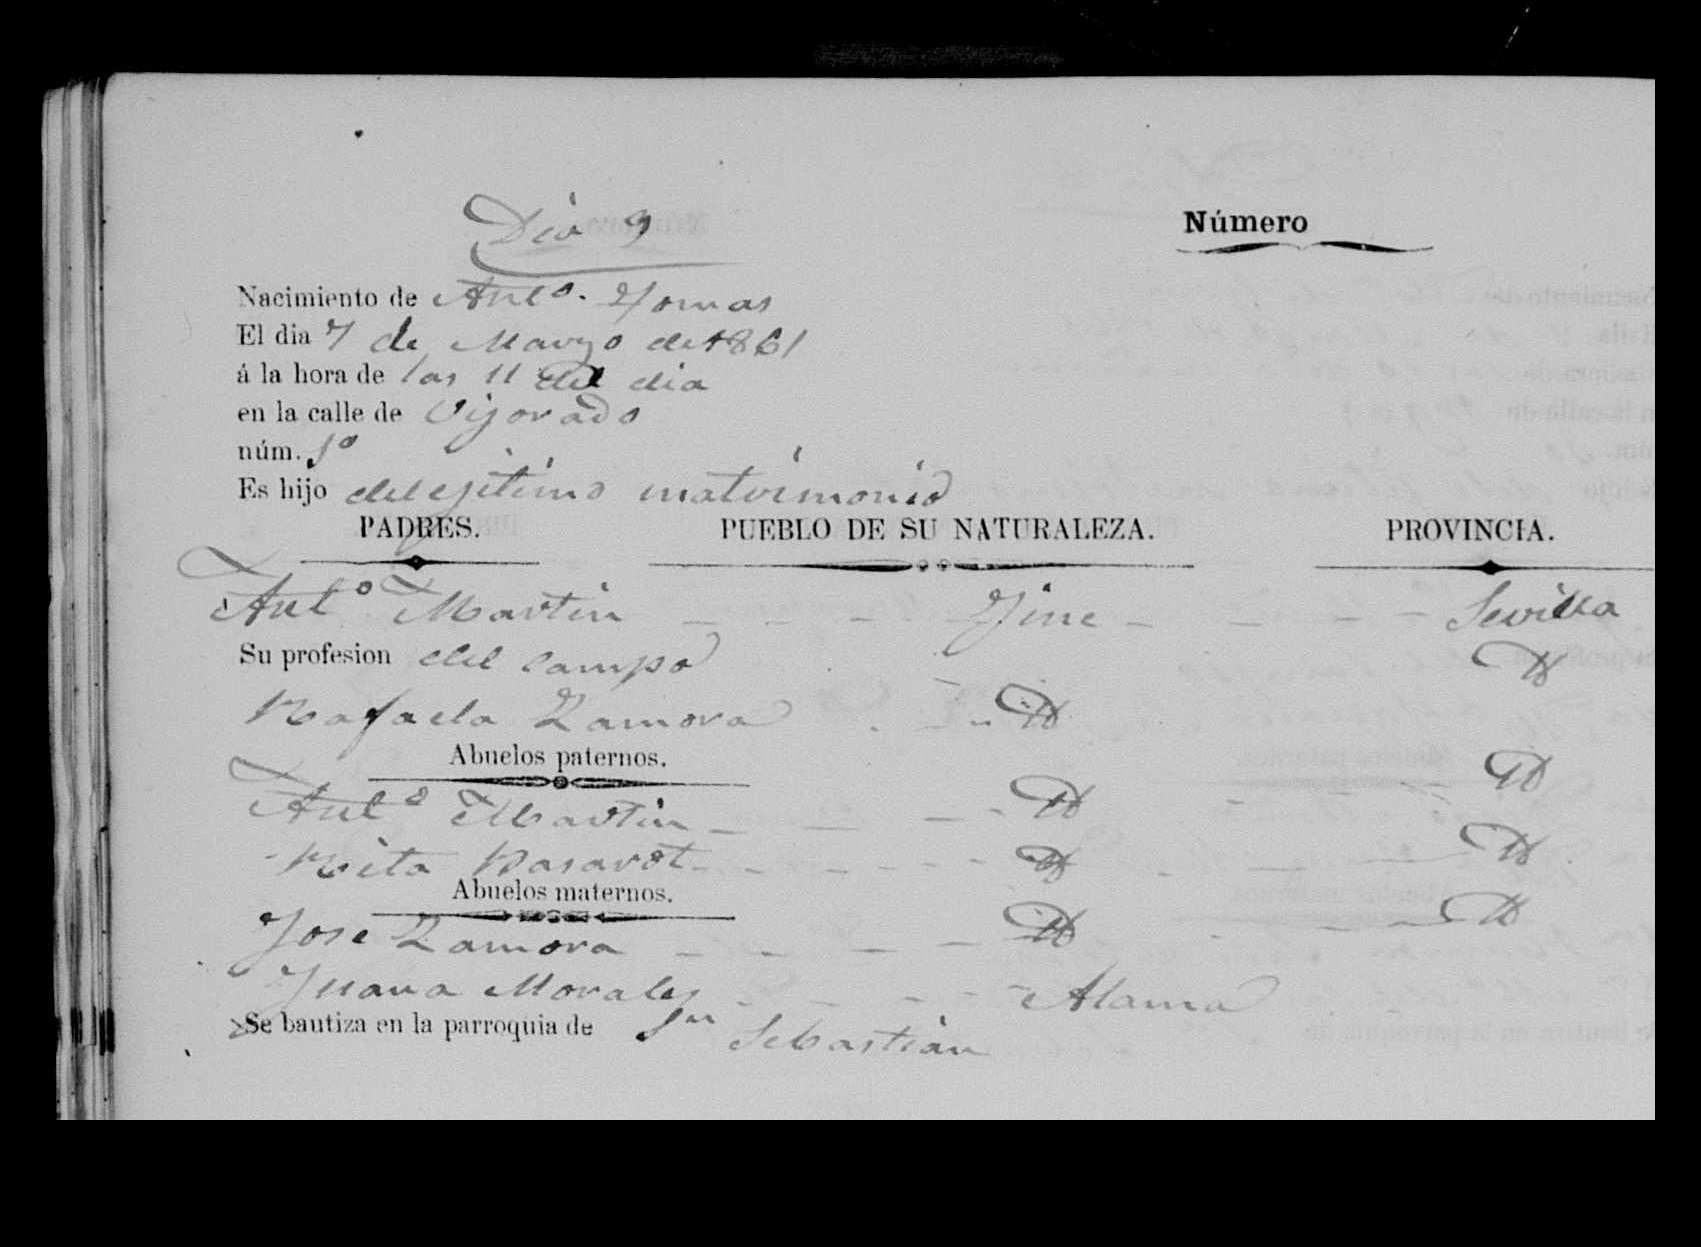 Dia 9
Número
Nacimiento de Antº. Tomas
El dia 7 de Marzo de 1861
á la hora de las 11 del dia
en la calle de
núm. 1º
Es hijo de lejitimo matrimonio
PADRES. PUEBLO DE SU NATURALEZA. PROVINCIA.
Antº Martin - - - - Sevilla
Su profesion del campo Yd
Rafaela Zamora - - Yd
Abuelos paternos. Yd
Antº Martin - - - - Yd
Rita - - - - Yd Yd
Abuelos maternos.
Jose Zamora - - - - Yd - - Yd
Juana Morales - - - - Alama
Se bautiza en la parroquia de Sn Sebastian